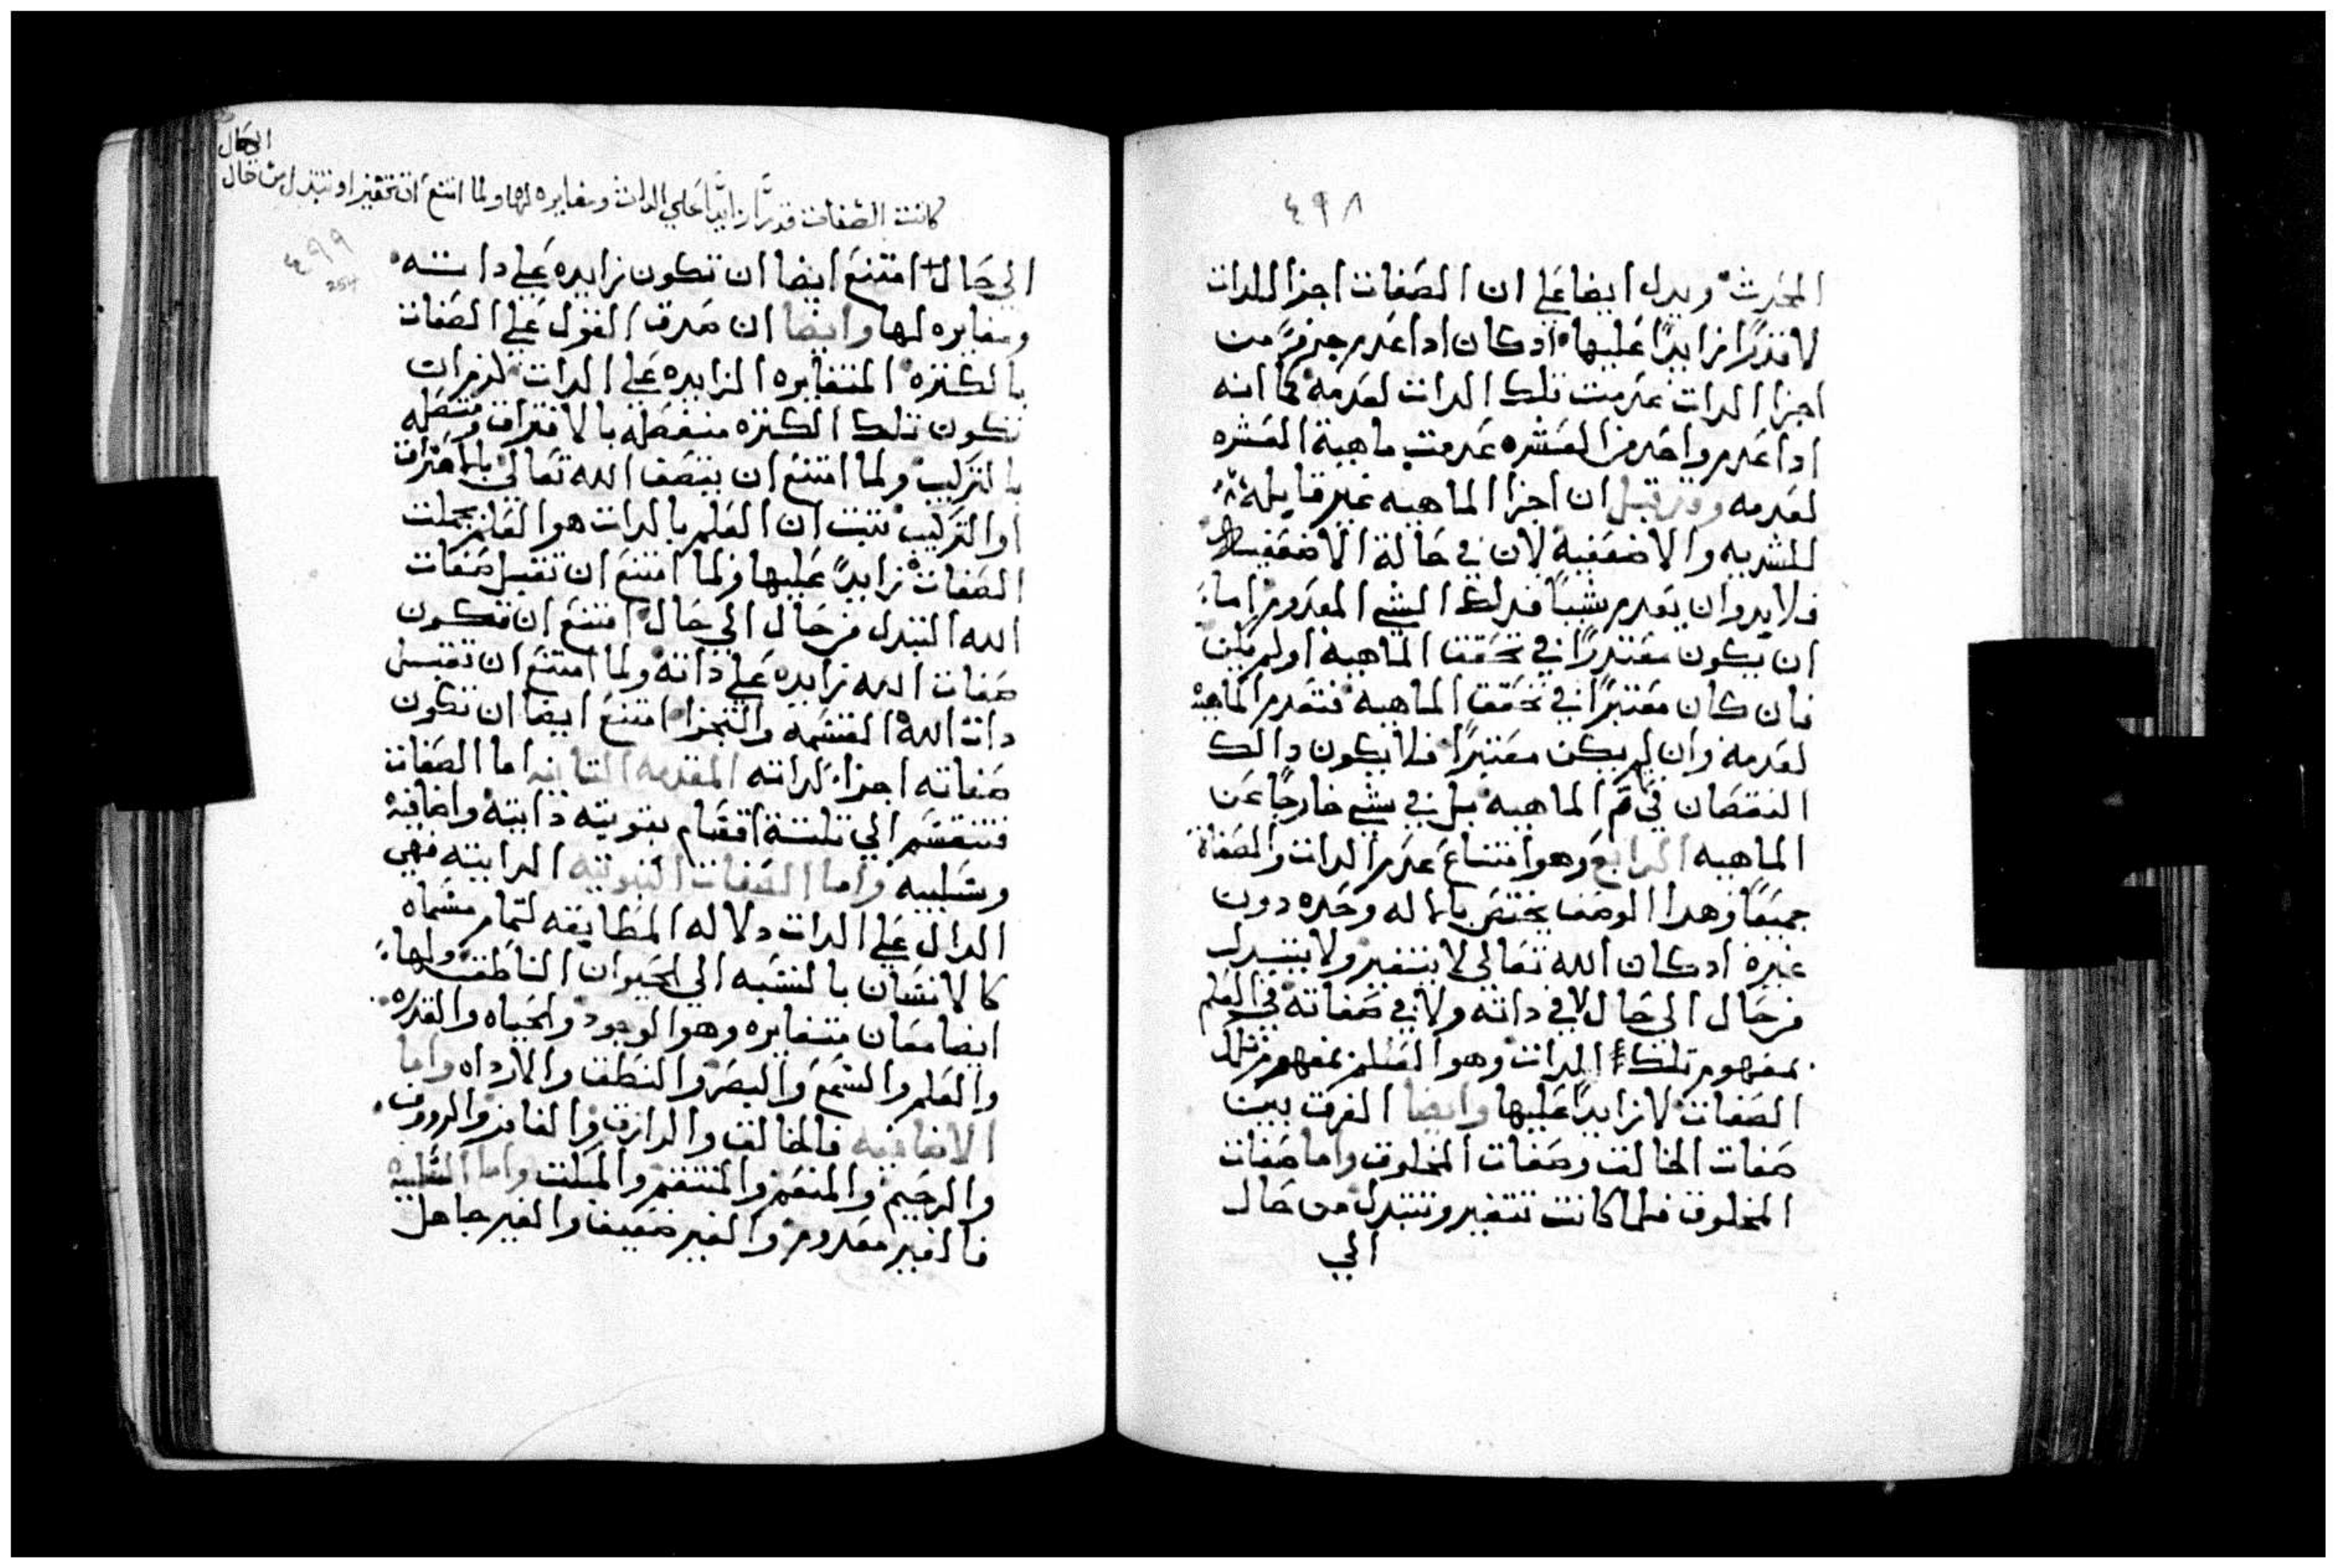 ٤٩٨
المحدث ويدل ايضا علي ان الصفات اجزا للدات
لا قدرًا زايدًا عليها اد كان ادا عدم جزوً من
اجزا الدات عدمت تلك الدات لعدمه كما انه
ادا عدم واحد من العشره عدمت ماهية العشره
لعدمه وقد قيل ان اجزا الماهيه غير قابله
للشديه والاضعفية لان في حالة الاضعفيه
فلابد وان يعدم شياً فدلك الشي المعدوم اما
ان يكون معتبرًا في تحقق الماهيه او لم يكن
فان كان معتبرًا في تحقق الماهيه فتعدم الماهية
لعدمه وان لم يكن معتبرًا فلا يكون دالك
النقصان في الماهيه بل في شي خارجًا عن
الماهيه الرابع وهو امتناع عدم الدات والصفاة
جميعًا وهدا الوصف يختص بالاله وحده دون
غيره اد كان الله تعالي لا يتغير ولا يتبدل
من حال الي حال لا في داته ولا في صفاته في العلم
بمفهوم تلك الدات وهو العلم بمفهوم تلك
الصفات لا زايدًا عليها وايضا الفرق بين
صفات الخالق وصفات المخلوق واما صفات
المخلوق فلما كانت تتغير وتتبدل من حال
الي
كانت الصفات قدرًا زايدًا علي الدات ومغايره لها ولما امتنع ان تتغير او تتبدل من حال
الي حال
٤٩٩
254
الي حال امتنع ايضا ان تكون زايده علي داته
ومغايره لها وايضا ان صدق القول علي الصفات
بالكتره المتغايره الزايده علي الدات لزم ان
تكون تلك الكتره منفصله بالافتراق ومتصله
بالتركيب ولما امتنع ان يتصف الله تعالي بالافتراق
او التركيب تبت ان العلم بالدات هو العلم بجملت
الصفات زايدً عليها ولما امتنع ان تقبل صفات
الله التبدل من حال الي حال امتنع ان تكون
صفات الله زايده علي داته ولما امتنع ان تقبل
دات الله القسمه والتجزا امتنع ايضا ان تكون
صفاته اجزا لداته المقدمه التانيه اما الصفات
فتنقسم الي تلتة اقسام تبوتيه داتية واضافية
وسلبيه واما الصفات التبوتيه الداتيه فهي
الدال علي الدات دلاله المطابقه لتمام مسماه
كالانسان بالنسبه الي الحيوان الناطق ولها
ايضا معان متغايره وهو الوجود والحياه والقدره
والعلم والسمع والبصر والنطق والاراداه واما
الاضافيه فالخالق والرازق والغافر والرووف
والرحيم والمنعم والمنتقم والمبلت واما السلبيه
فالغير معدوم والغير ضعيف والغير جاهل